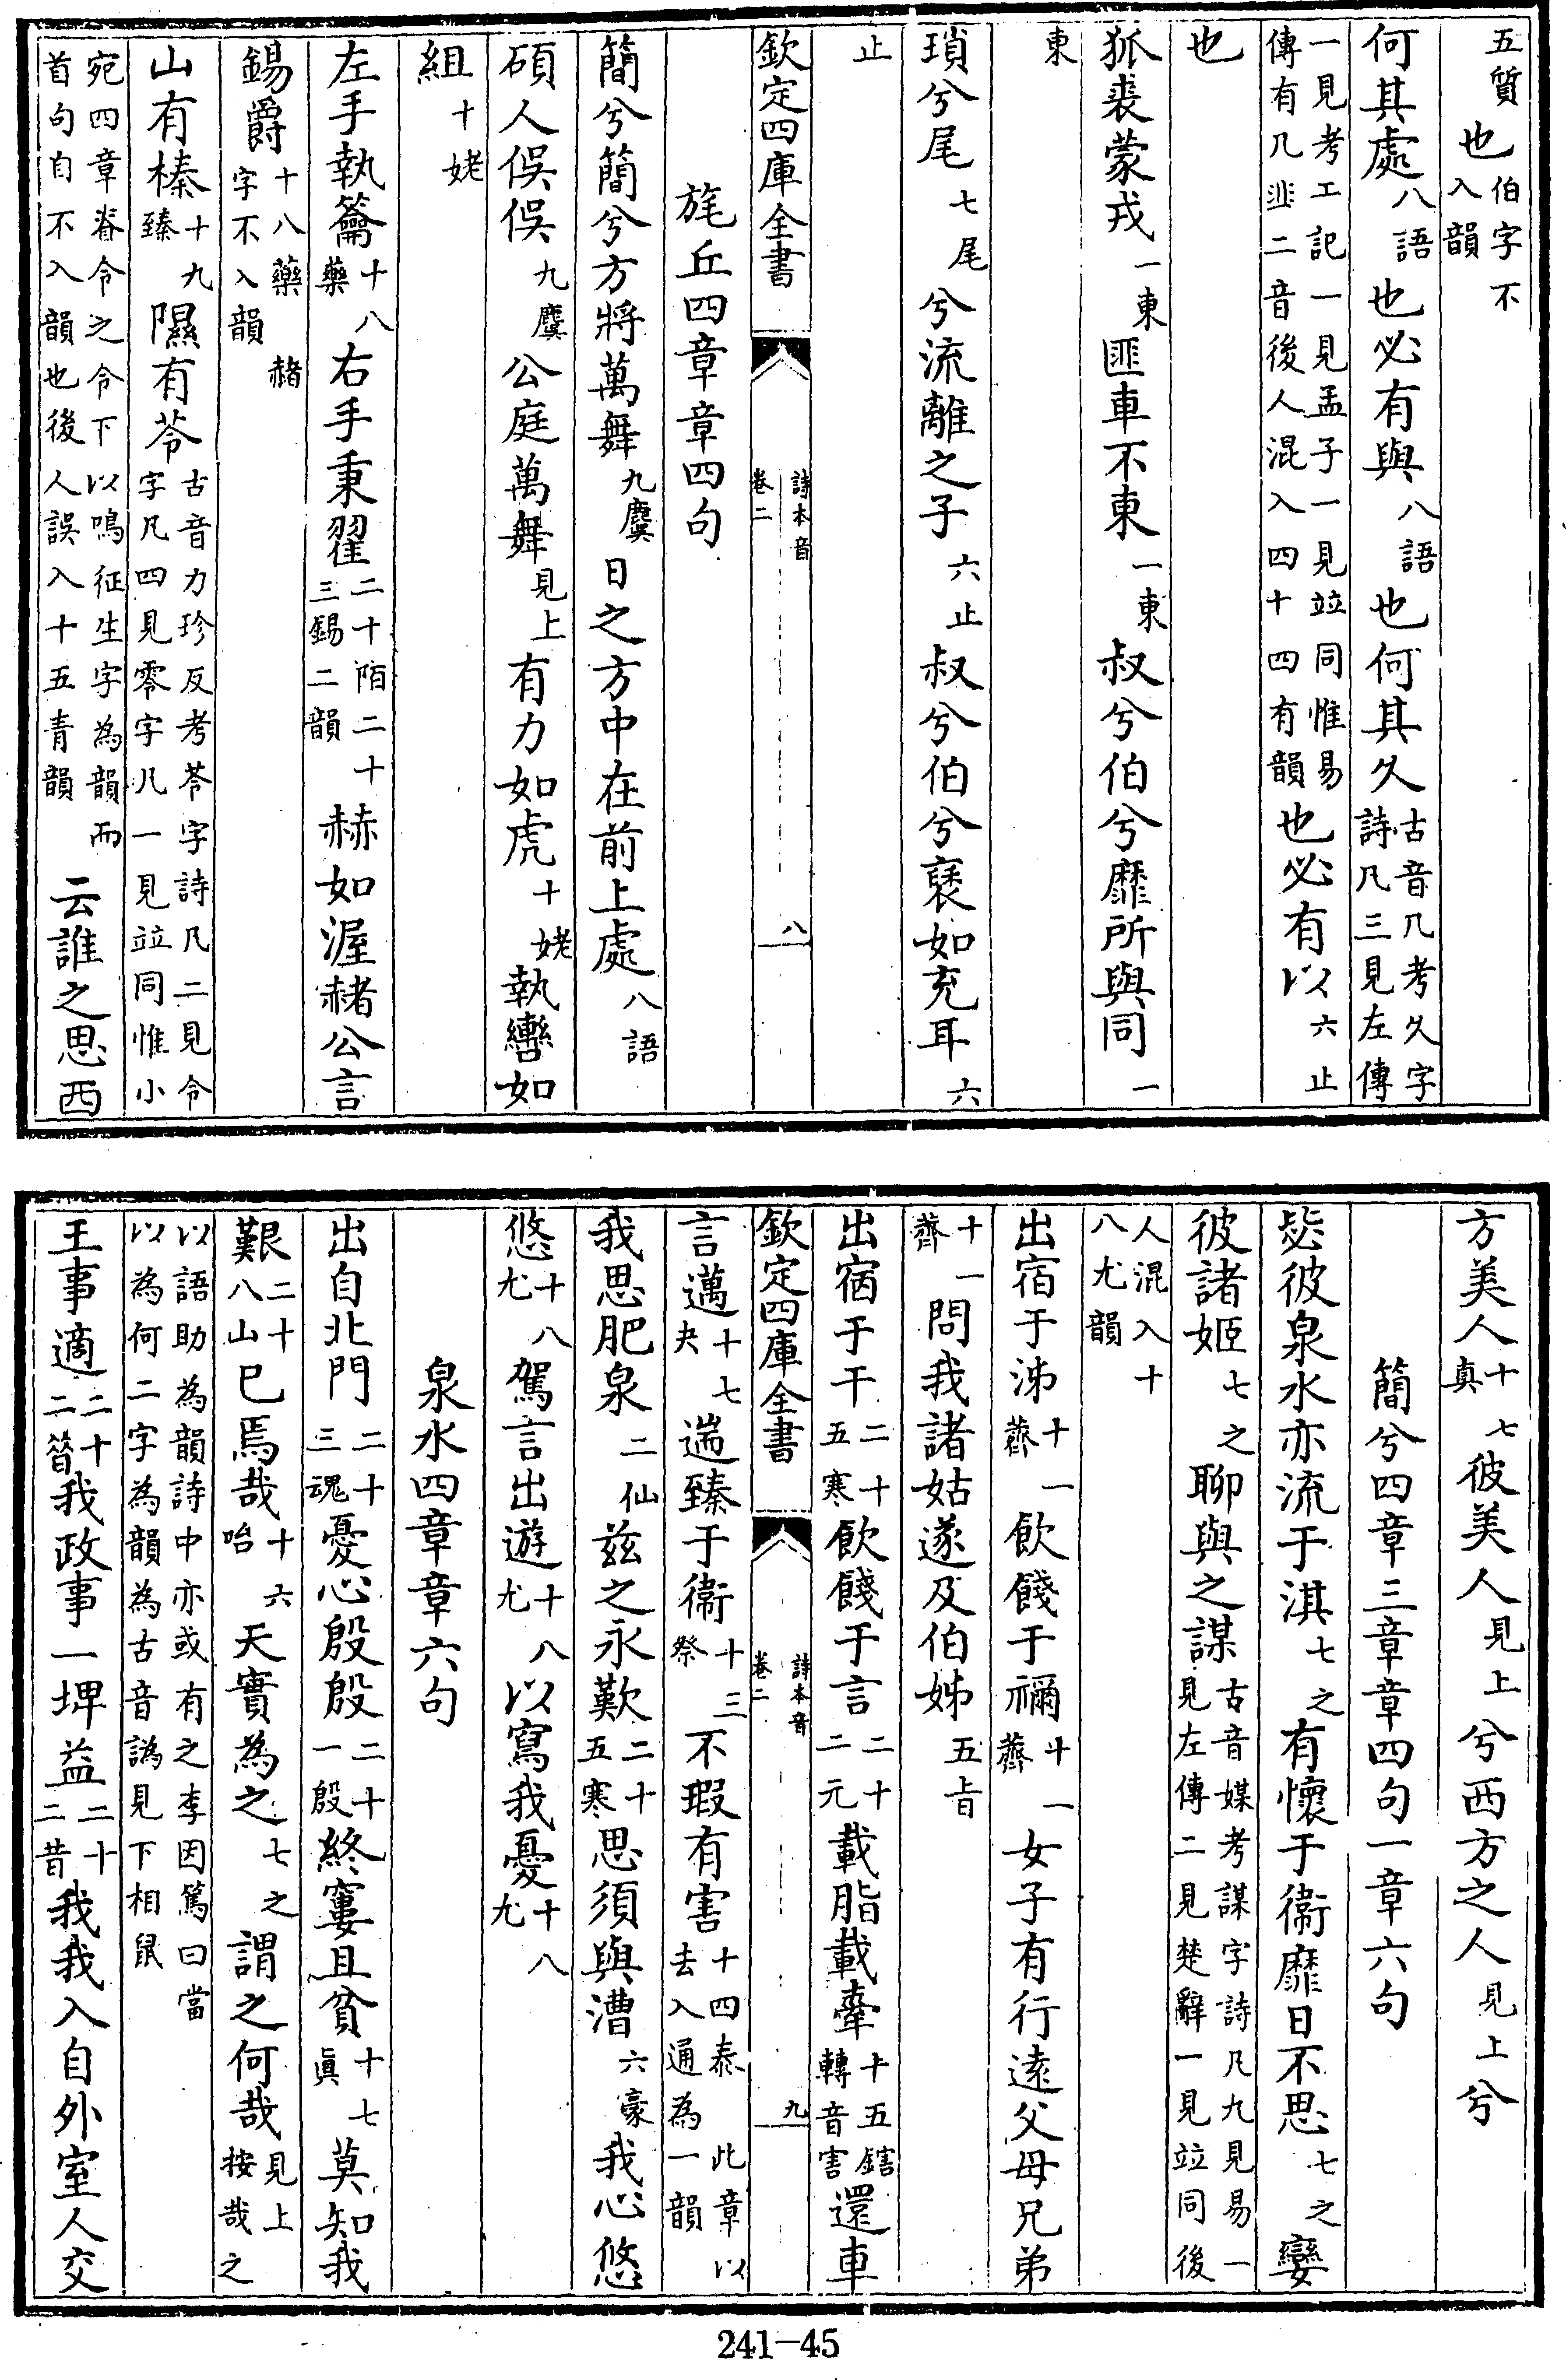 五質伯字不入韻也
何其處八語也必有與八語也何其久古音几考久字詩凡三見左傳
一見考工記一見孟子一見竝同惟易傳有几韭二音後人混入四十四有韻也必有以六止
也
狐裘蒙戎一東匪車不東一東叔兮伯兮靡所與同一
東
瑣兮尾七尾兮流離之子六止叔兮伯兮褎如充耳六
止
旄丘四章章四句
簡兮簡兮方將萬舞九麌日之方中在前上處八語
碩人俁俁九麌公庭萬舞見上有力如虎十姥執轡如
組十姥
左手執籥十八藥右手秉翟二十陌二十三錫二韻赫如渥赭公言
錫爵十八藥赭字不入韻
山有榛十九臻隰有苓古音力珍反考苓字詩凡二見令字凡四見零字凡一見竝同惟小
宛四章脊令之令下以鳴征生字為韻而首句自不入韻也後人誤入十五青韻云誰之思西
欽定四庫全書
詩本音
卷二
八
方美人十七真彼美人見上兮西方之人見上兮
簡兮四章三章章四句一章六句
毖彼泉水亦流于淇七之有懷于衞靡日不思七之孌
彼諸姬七之聊與之謀古音媒考謀字詩凡九見易一見左傳二見楚辭一見竝同後
人混入十八尤韻
出宿于泲十一薺飲餞于禰十一薺女子有行遠父母兄弟
十一薺問我諸姑遂及伯姊五旨
出宿于干二十五寒飲餞于言二十二元載脂載舝十五鎋轉音害還車
言邁十七夬遄臻于衞十三祭不瑕有害十四泰此章以去入通為一韻
我思肥泉二仙兹之永歎二十五寒思須與漕六豪我心悠
悠十八尤駕言出遊十八尤以寫我憂十八尤
泉水四章章六句
出自北門二十三魂憂心殷殷二十一殷終窶且貧十七眞莫知我
艱二十八山已焉哉十六咍天實為之七之謂之何哉見上按哉之
以語助為韻詩中亦或有之李因篤曰當以為何二字為韻為古音譌見下相鼠
王事適二十二簮我政事一埤益二十二昔我我入自外室人交
欽定四庫全書
詩本音
卷二
九
241-45